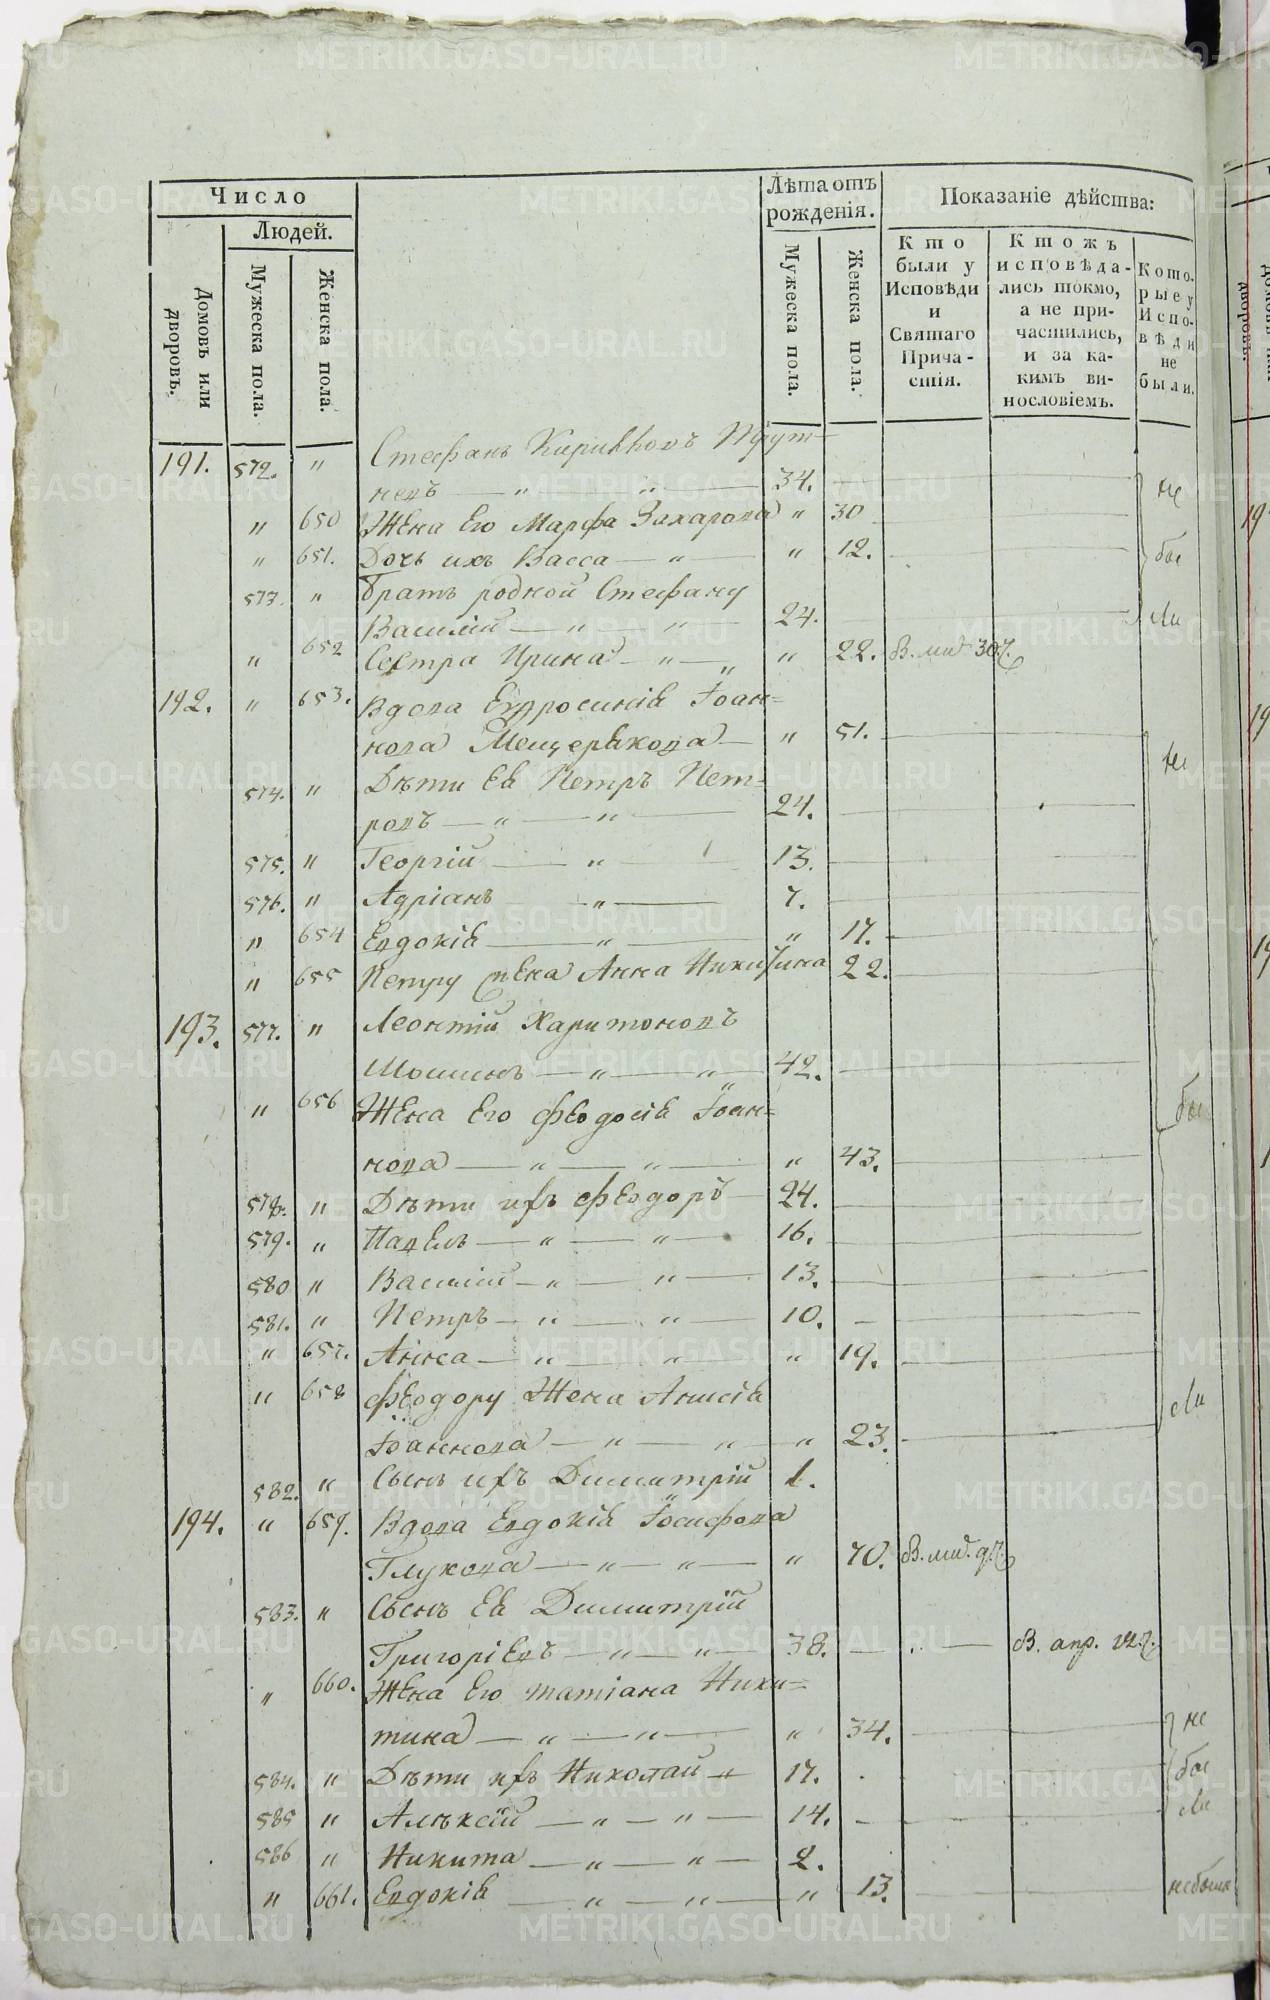 Число
Людей.
Домовъ или дворовъ.
Мужеска пола.
Женска пола.
Лѣта отъ рожденія.
Мужеска пола.
Женска пола.
Показаніе дѣйства:
Кто были у Исповѣди и Святаго Причастія.
Ктожъ исповѣдались токмо, а не причастились, и за какимъ винословіемъ.
Которые у Исповѣди не были.
191. 572. " Стефанъ
— " — " — 34. не
" 650 Жена Его Марфа Захарова " 30
" 651. Дочь ихъ Васса — " — " 12. бы
573. " Братъ родной Стефану
Василій — " — " — 24. ли
" 652 Сестра Ирина — " — " " 22.
192. " 653. Вдова Евфросинія Іоан=
нова Мещерякова — " 51. не
574. " Дѣти Ея Петръ Пет=
ровъ — " — " — 24.
575. " Георгій — " — 13.
576. " Адріанъ " — 7.
" 654 Евдокія — " — " 17.
" 655 Петру жена Анна Никитина 22.
193. 577. " Леонтій Харитоновъ
Мошинъ — " — " — 42.
" 656 Жена Его Феодосія Іоан=
нова — " — " — " 43. бы
578. " Дѣти ихъ Феодоръ — 24.
579. " Павелъ — " — " — 16.
580 " Василій — " — " — 13.
581. " Петръ — " — " — 10.
" 657. Анна — " — " — " 19.
" 658 Феодору Жена Анисія
Іоаннова — " — " — " 23. ли
582. " Сынъ ихъ Димитрій 1.
194. " 659. Вдова Евдокія Іосифова
Глухова — " — " — " 70.
583. " Сынъ Ея Димитрій
Григоріевъ — " — " — 38. — — В. апр.
" 660. Жена Его Татіана Ники=
тина — " — " — " 34. не
584. " Дѣти ихъ Николай — " 17. бы
585 " Алѣксій — " — " — 14. ли
586 " Никита — " — " — 2.
" 661. Евдокія — " — " — " 13. не была
METRIKI.GASO-URAL.RU